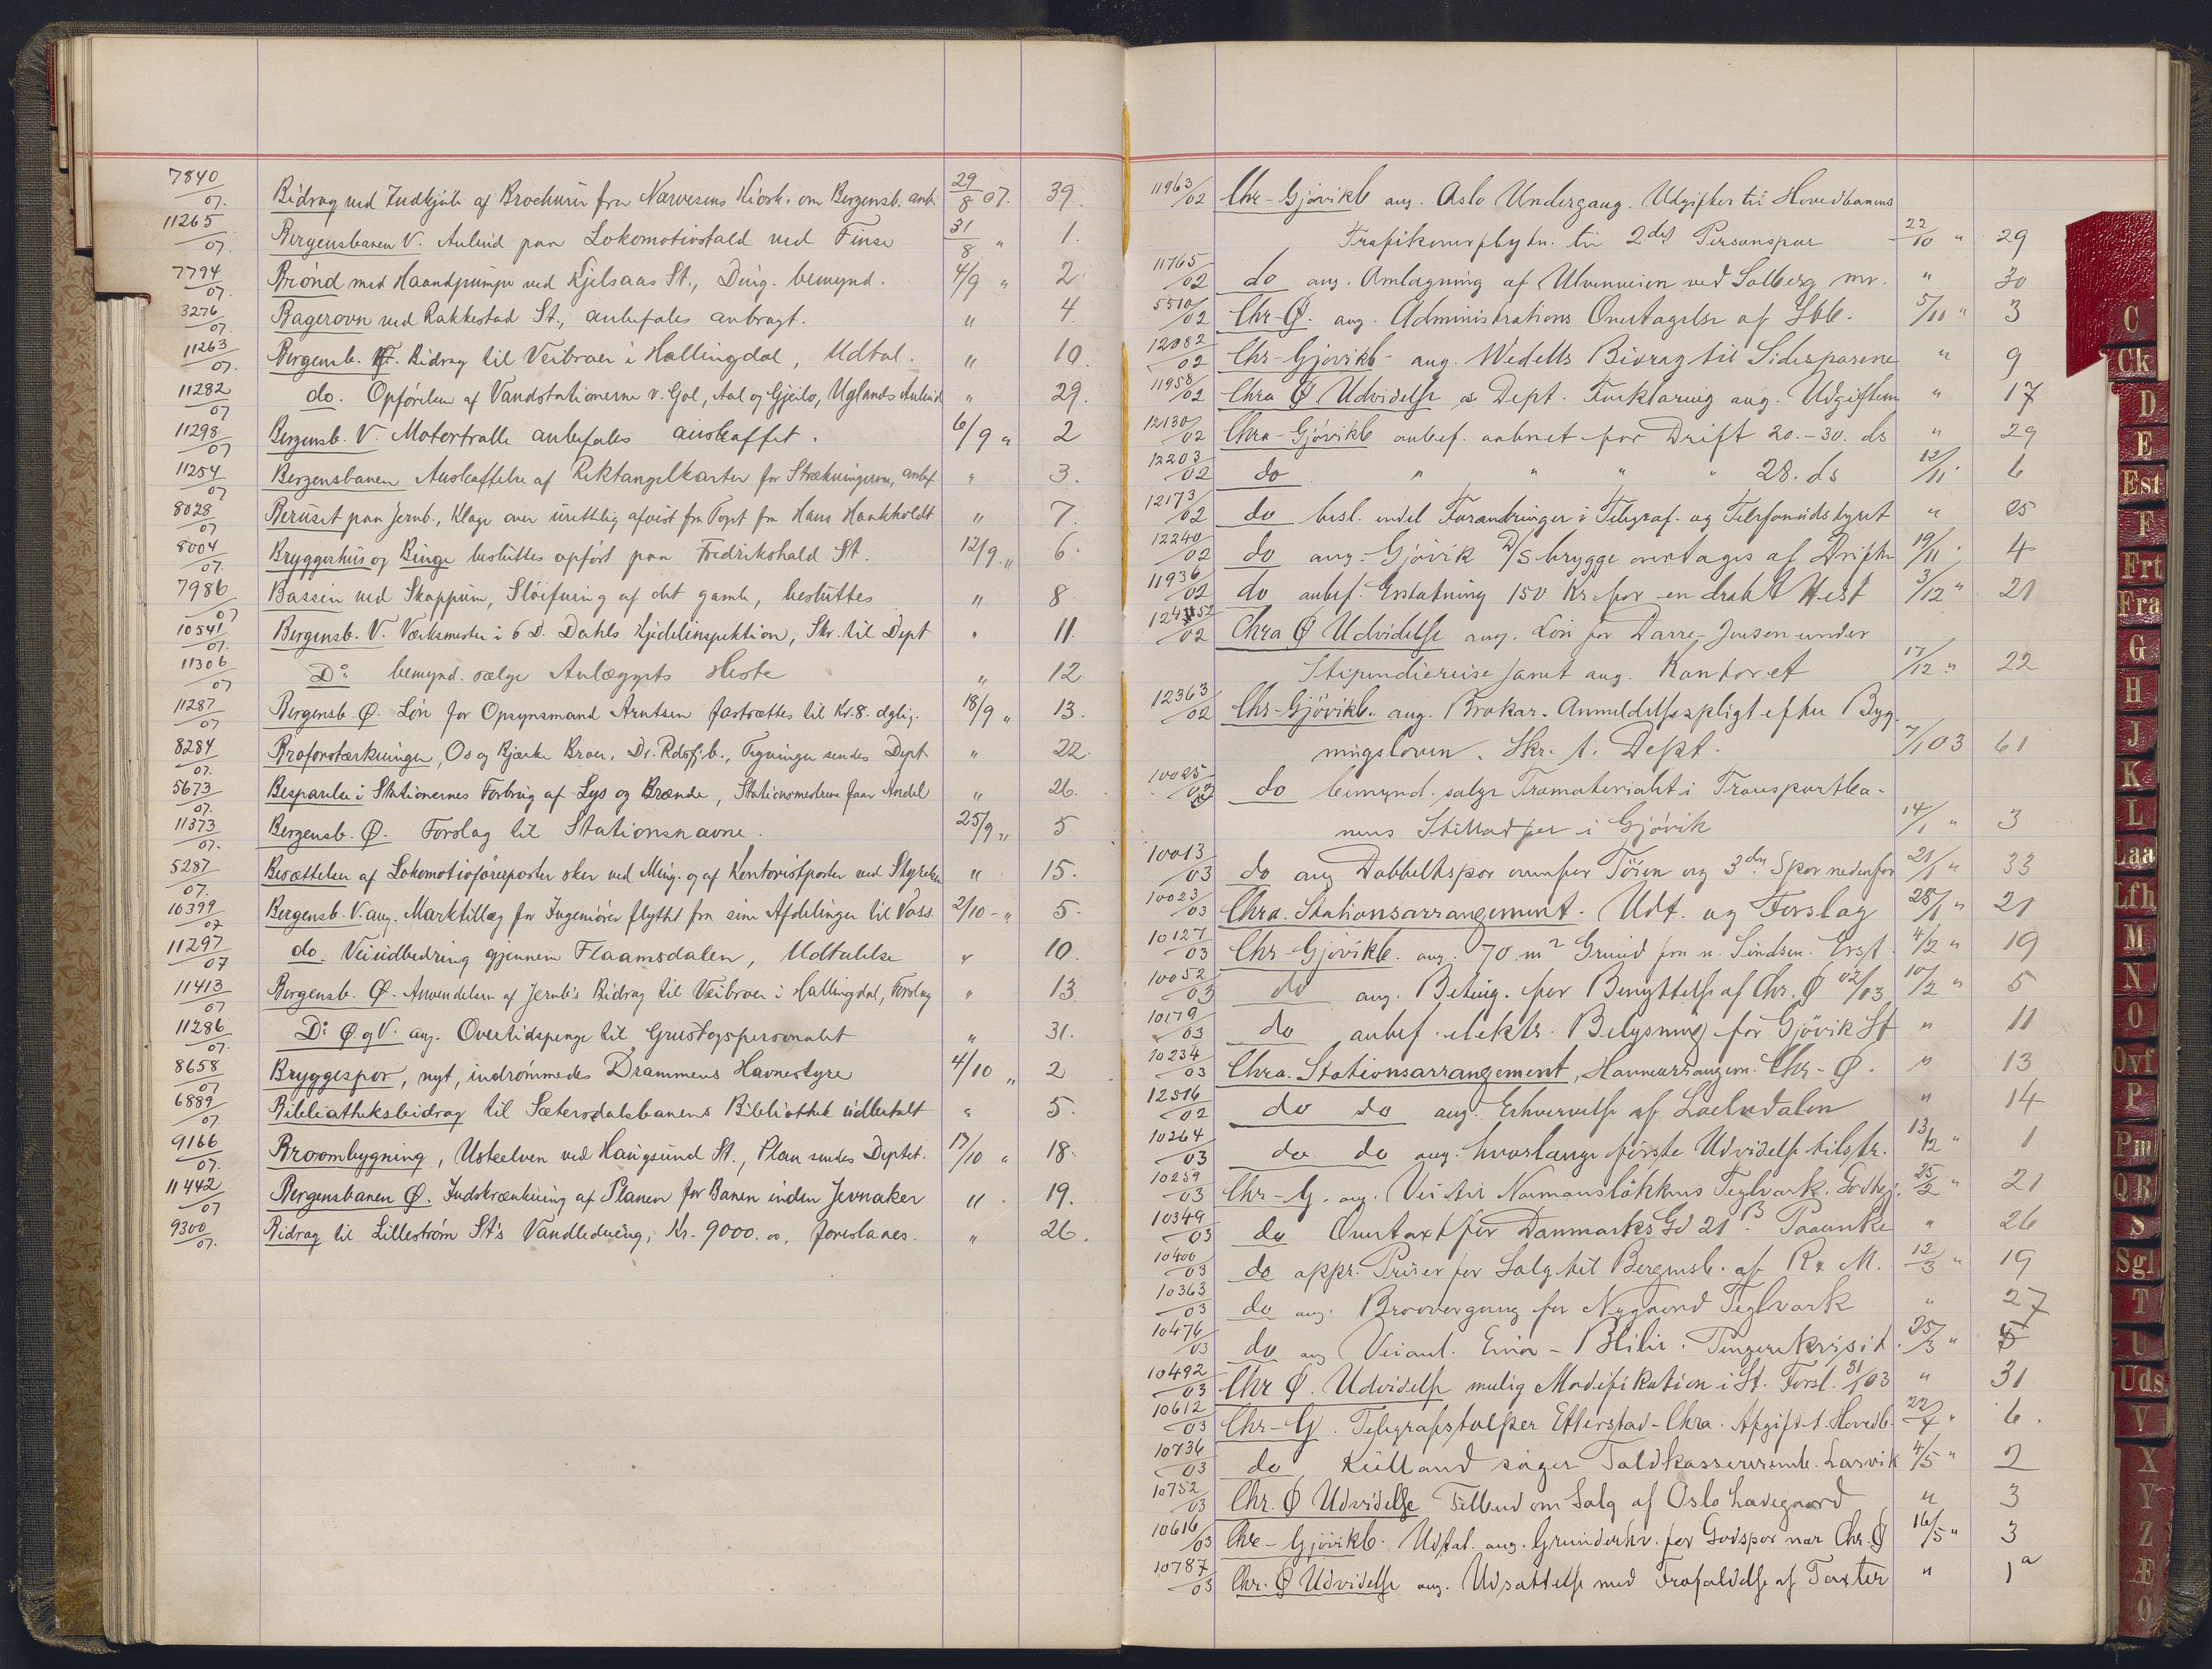 7840/07. Bidrag ved Indkjøb af Brochurer fra Narvesens Kiosk. om Bergensb. anb. 29/8 07. 39.
11265/07. Bergensbanen V. Anbud paa Lokomotivstald ved Finse 31/8 " 1.
7794/07. Brønd med Haandpumpe ved Kjelsaas St., Ding. bemynd. 4/9 " 2.
3276/07. Bagerovn ved Rakkestad St., anbefales anbragt. " 4.
11263/07. Bergensb. Ø. Bidrag til Veibroer i Hallingdal, Udtal. " 10.
11282/07 do. Opførelsen af Vandstationerne v. Gol, Aal og Gjeilo, Uglands Anbud " 29.
11298/07 Bergensb. V. Motortralle anbefales anskaffet. 6/9 " 2
11254/07 Bergensbanen Anskaffelse af Rektangelkarter for Strækningerne, anbef. " 3.
8028/07 Beruset paa Jernb., Klage over urettelig afvist fra Toget fra Hans Haakholdt " 7.
8004/07. Bryggerhus og Binge besluttes opført paa Fredrikshald St. 12/9 " 6.
7986/07 Bassin ved Skoppum, Sløifning af det gamle, besluttes " 8.
10541/07. Bergensb. V. Værksmester i 6 D. Dahls Kjedelinspektion, Skr. til Dept " 11.
11306/07 Do. bemynd. sælge Anlæggets Heste " 12.
11287/07 Bergensb. Ø. Løn for Opsynsmand Arntsen fastsættes til Kr. 8. dglig. 18/9 " 13.
8284/07. Broforstærkninger, Os og Bjerke Broer, Dr. Rdsfj.b., Tegninger sendes Dept " 22.
5673/07. Besparelse i Stationernes Forbrug af Lys og Brænde, Stationsmestrene faar Andel " 26.
11373/07. Bergensb. Ø. Forslag til Stationsnavne. 25/9 " 5
5287/07. Besættelser af Lokomotivførerposter sker ved Ming. og af Kontoristposter ved Styrelsen " 15.
10399/07 Bergensb. V. ang. Marktillæg for Ingeniører flyttet fra sine Afdelinger til Voss. 2/10 - " 5.
11297/07 do. Veiudbedring gjennem Flaamsdalen, Udtalelse " 10.
11413/07 Bergensb. Ø. Anvendelsen af Jernb's Bidrag til Veibroer i Hallingdal, Forslag " 13
11286/07. Do Ø. og V. ang. Overtidspenge til Grustogspersonalet " 31.
8658/07 Bryggespor, nyt, indrømmedes Drammens Havnestyre 4/10 " 2
6889/07 Bibliotheksbidrag til Sætersdalsbanens Bibliothek udbetalt " 5.
9166/07. Broombygning, Ustaelven ved Haugsund St., Plan sendes Deptet. 17/10 " 18.
11442/07 Bergensbanen Ø. Indskrænkning af Planen for Banen inden Jevnaker " 19.
9300/07. Bidrag til Lillestrøm St's Vandledning, Kr. 9000.00, foreslaaes. " 26.
11963/02 Chr-Gjøvikb ang. Oslo Undergang. Udgifter til Hovedbanens
Trafikomflytn. til 2det Personspor 22/10 " 29
11765/02 do ang. Omlægning af Ulvenveien ved Solberg mv. " 30
5510/02 Chr-Ø. ang. Administrations Overtagelse af Gbb. 5/11 " 3
12082/02 Chr-Gjøvikb- ang. Wedells Bidrag til Sidesporene " 9
11958/02 Chra Ø Udvidelse Dept. Forklaring ang. Udgifterne " 17
12130/02 Chra-Gjøvikb anbef. aabnet for Drift 20.-30. ds " 29
12203/02 do " " " " 28. ds 12/11 " 6
12173/02 do besl. endel Forandringer i Telegraf. og Telefonudstyret " 25
12240/02 do ang. Gjøvik D/S brygge overtages af Driften 19/11 " 4
11936/02 do anbef. Erstatning 150 Kr for en dræbt Hest 3/12 " 21
12452/02 Chra Ø Udvidelse ang. Løn for Darre-Jensen under
Stipendiereise samt ang. Kontoret 17/12 " 22
12363/02 Chr-Gjøvikb. ang. Brokar. Anmeldelsespligt efter Byg-
ningsloven. Skr. t. Dept. 7/1 03 61
10025/03 do bemynd. sælge Træmaterialet i Transportba-
nens Stillads i Gjøvik 14/1 " 3
10013/03 do ang Dobbeltspor ovenfor Tøien og 3die Spor nedenfor 21/1 " 33
10023/03 Chra. Stationsarrangement. Udt. og Forslag 28/1 " 21
10127/03 Chr-Gjøvikb. ang. 70 m2 Grund fra n. Sindsen. Erst. 4/2 " 19
10052/03 do ang. Beting. for Benyttelse af Chr. Ø 02/03 10/2 " 5
10179/03 do anbef. elektr. Belysning for Gjøvik St " 11
10234/03 Chra. Stationsarrangement, Havnearrangem. Chr-Ø. " 13
12516/02 do do ang. Erhvervelse af Loelvdalen " 14
10264/03 do do ang. hvorlænge første Udvidelse tilstr. 13/2 " 1
10259/03 Chr-G. ang. Vei til Normansløkkens Teglværk. Godtgj. 25/2 " 21
10349/03 do Overtaxt for Danmarks Gd 21 B Paaanke " 26
10400/03 do appr. Priser for Salg til Bergensb. af R. M. 12/3 " 19
10363/03 do ang. Broovergang for Nygaard Teglværk " 27
10476/03 do ang Veianl. Eina - Blili. 25/3 " 5
10492/03 Chr Ø. Udvidelse mulig Modifikation i St. Forsl. 31/1 03 " 31
10612/03 Chr-G. Telegrafstolper Etterstad-Chra. Afgift t. Hovedb. 22/4 " 6.
10736/03 do Kielland søger Toldkassererembr. Larvik 4/5 " 2
10752/03 Chr. Ø Udvidelse Tilbud om Salg af Oslo Ladegaard " 3
10616/03 Chr-Gjøvikb. Udtal. ang. Grunderhv. for Godsspor nær Chr. Ø 16/5 " 3
10787/03 Chr. Ø Udvidelse ang. Udsættelse med Frafaldelse af Taxter " 1a
C
Ck
D
E
Est
F
Frt
Fra
G
H
J
K
L
Laa
Lfh
M
N
O
Ovf
P
Pm
QR
S
Sgl
T
U
Uds
V
X
Y
Z
Æ
Ø